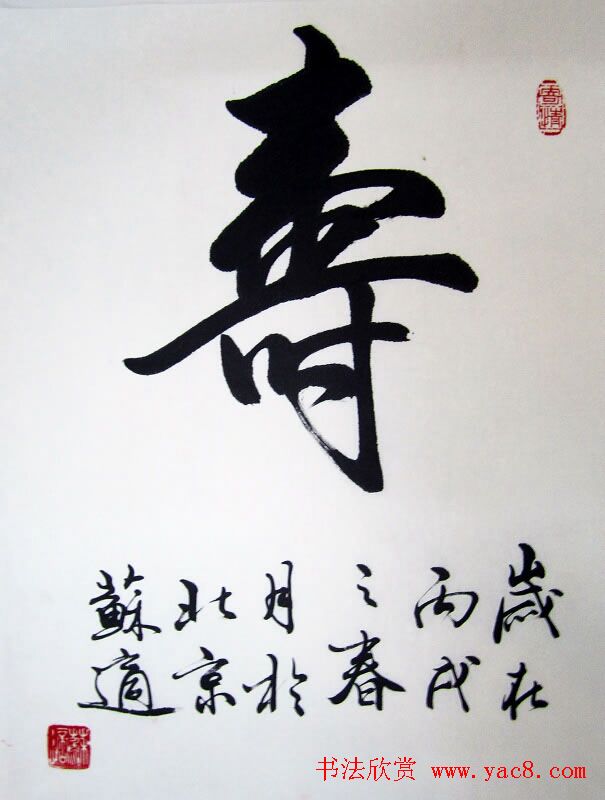 壽
歲在
丙戌
之春
月於
北京
蘇適
书法欣赏 www.yac8.com